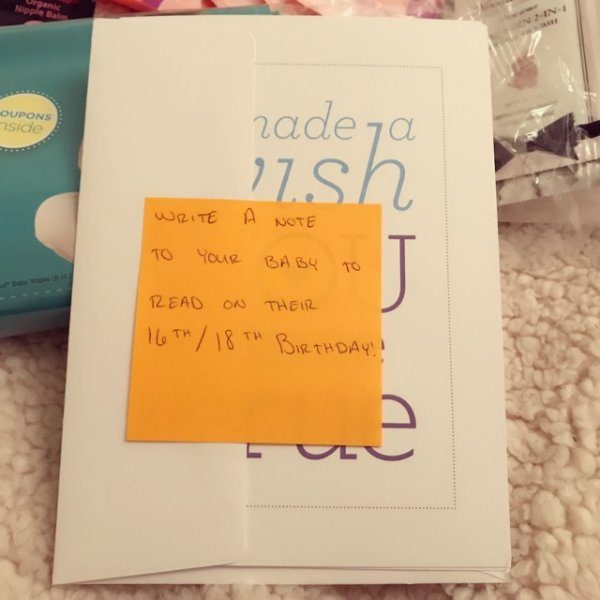 Organic
Nipple Balm
COUPONS
inside
Baby Wipes
made a
wish
WRITE A NOTE
TO YOUR BABY TO
READ ON THEIR
16TH/18TH BIRTHDAY!
2-IN-1
WASH